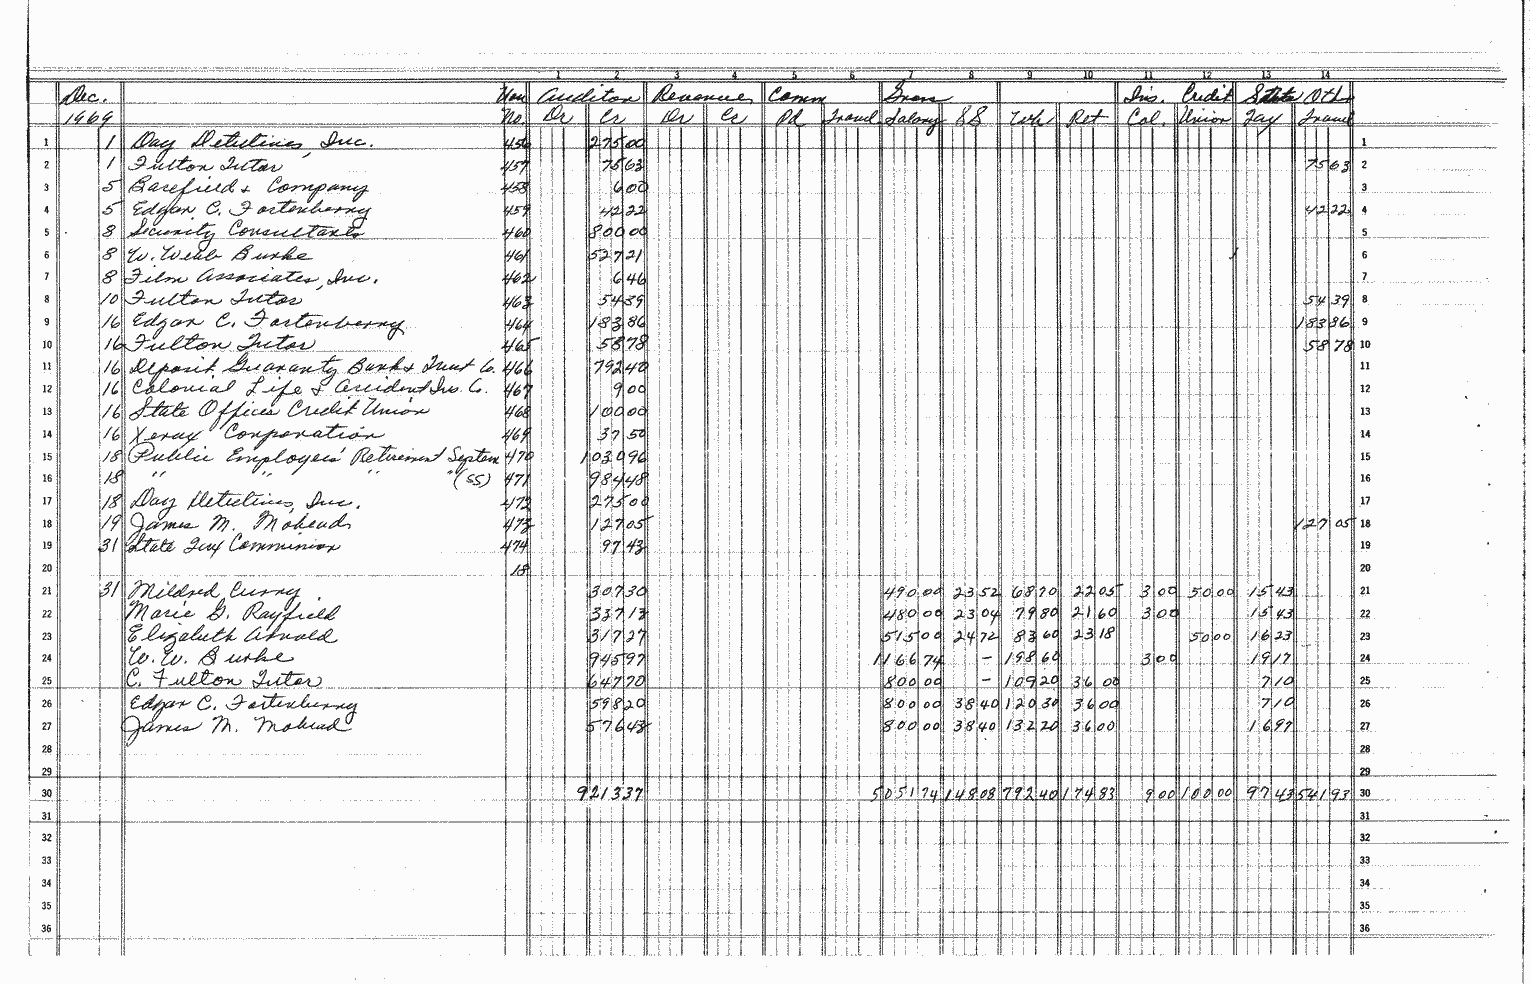 1 2 3 4 5 6 7 8 9 10 11 12 13 14
Dec. Auditor Revenue Comm Gross Ins. Credit State Oth
1969 No. Dr Cr Dr Cr Pd Travel Salary SS Wh Ret Col. Union Tax Travel
1 1 Day Detectives, Inc. 456 275 00 1
2 1 Fulton Tutor 457 75 63 75 63 2
3 5 Barefield & Company 458 6 00 3
4 5 Edgar C. Fortenberry 459 42 22 42 22 4
5 8 Security Consultants 460 800 00 5
6 8 W. Webb Burke 461 527 21 6
7 8 Film Associates, Inc. 462 6 46 7
8 10 Fulton Tutor 463 54 39 54 39 8
9 16 Edgar C. Fortenberry 464 183 86 183 86 9
10 16 Fulton Tutor 465 58 78 58 78 10
11 16 Deposit Guaranty Bank & Trust Co. 466 792 40 11
12 16 Colonial Life & Accident Ins. Co. 467 9 00 12
13 16 State Offices Credit Union 468 100 00 13
14 16 Xerox Corporation 469 37 50 14
15 18 Public Employees' Retirement System 470 1030 96 15
16 18 " " " " (SS) 471 984 48 16
17 18 Day Detectives, Inc. 472 275 00 17
18 19 James M. Mohead 473 127 05 127 05 18
19 31 State Tax Commission 474 97 43 19
20 18 20
21 31 Mildred Curry 307 30 490 00 23 52 68 70 22 05 3 00 50 00 15 43 21
22 Marie G. Rayfield 337 13 480 00 23 04 79 80 21 60 3 00 15 43 22
23 Elizabeth Arnold 317 27 515 00 24 72 83 60 23 18 50 00 16 23 23
24 W. W. Burke 945 97 1166 74 - 198 60 3 00 19 17 24
25 C. Fulton Tutor 647 70 800 00 - 109 20 36 00 7 10 25
26 Edgar C. Fortenberry 598 20 800 00 38 40 120 30 36 00 7 10 26
27 James M. Mohead 576 43 800 00 38 40 132 20 36 00 16 97 27
28 28
29 29
30 9213 37 5051 74 148 08 792 40 174 83 9 00 100 00 97 43 541 93 30
31 31
32 32
33 33
34 34
35 35
36 36